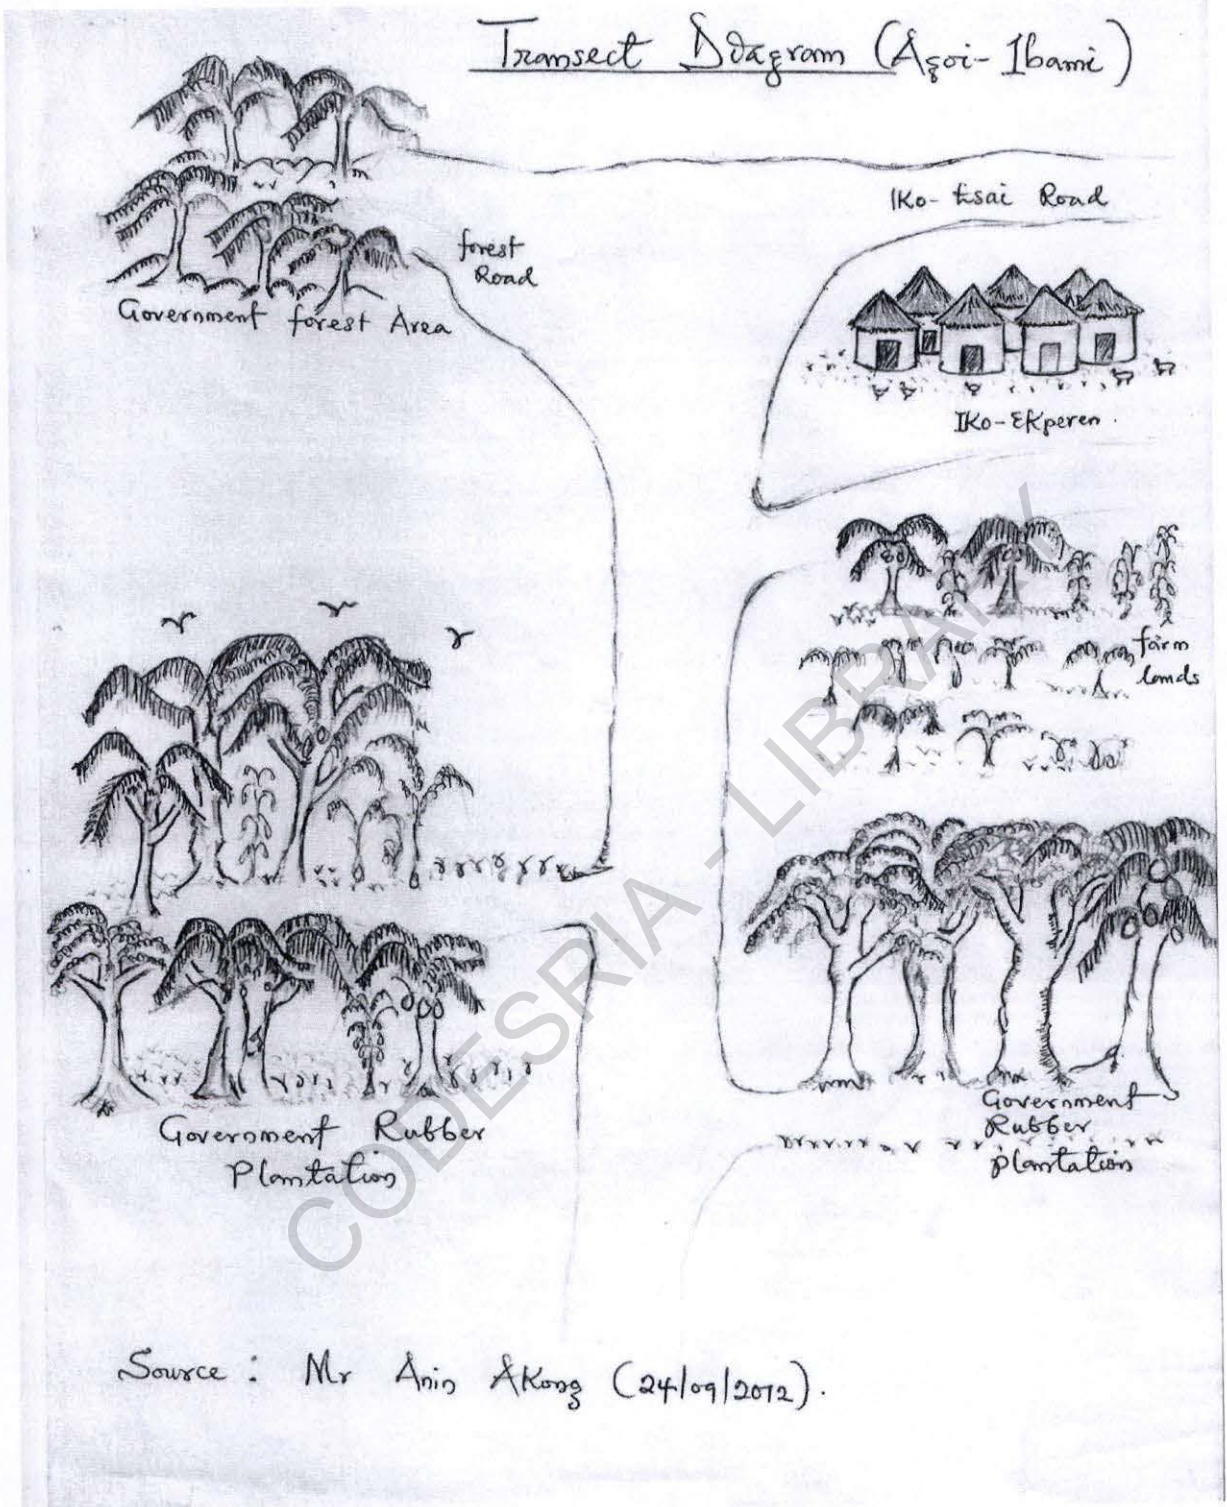 Transect Diagram (Agoi-Ibami)
Iko-Esai Road
forest
Road
Government forest Area
Iko-Ekperen.
farm
lands
Government Rubber
Plantation
Government
Rubber
plantation
CODESRIA - LIBRARY
Source: Mr Anin Akong (24/09/2012).